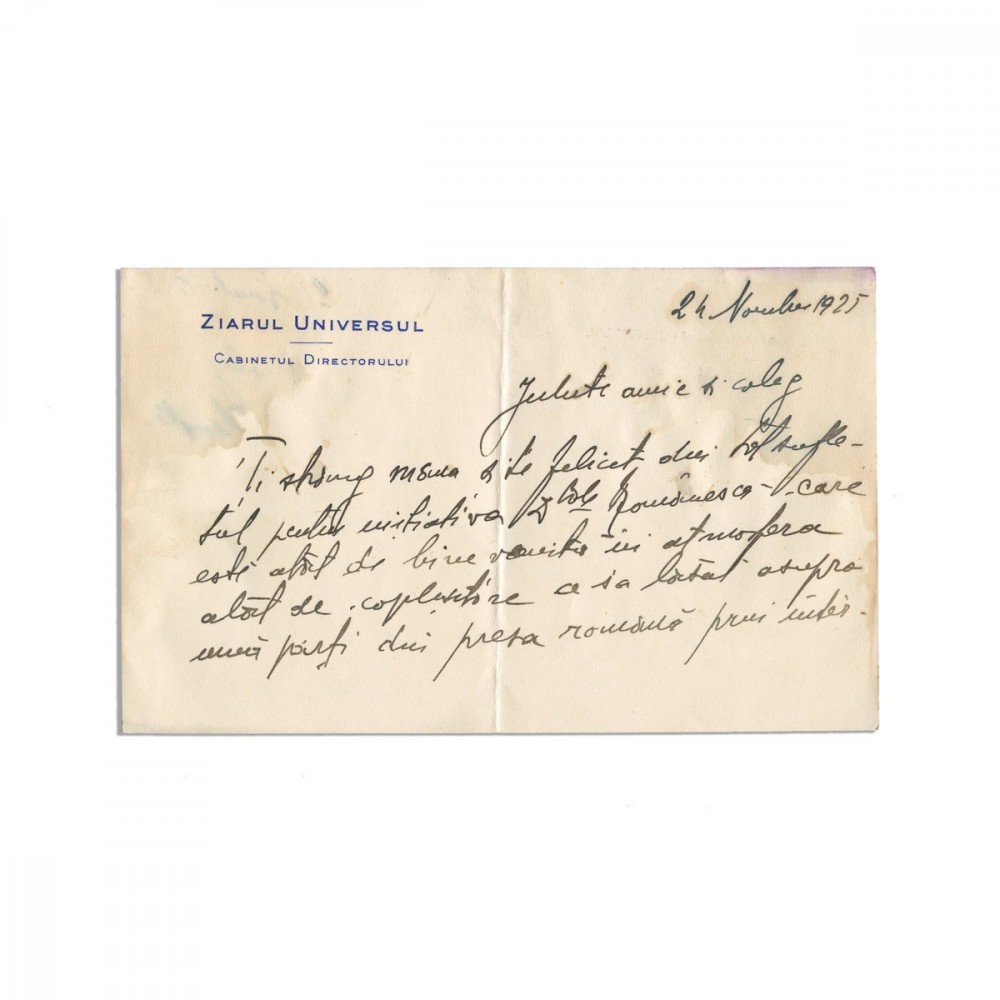 ZIARUL UNIVERSUL
CABINETUL DIRECTORULUI
24 Novembre 1925
Iubite amic și coleg
Ți strâng mâna și te felicit din tot sufle-
tul pentru initiativa Românesca care
este atât de bine venita in atmosfera
atât de coplesitore ce s'a lăsat asupra
unei părți din presa română prin